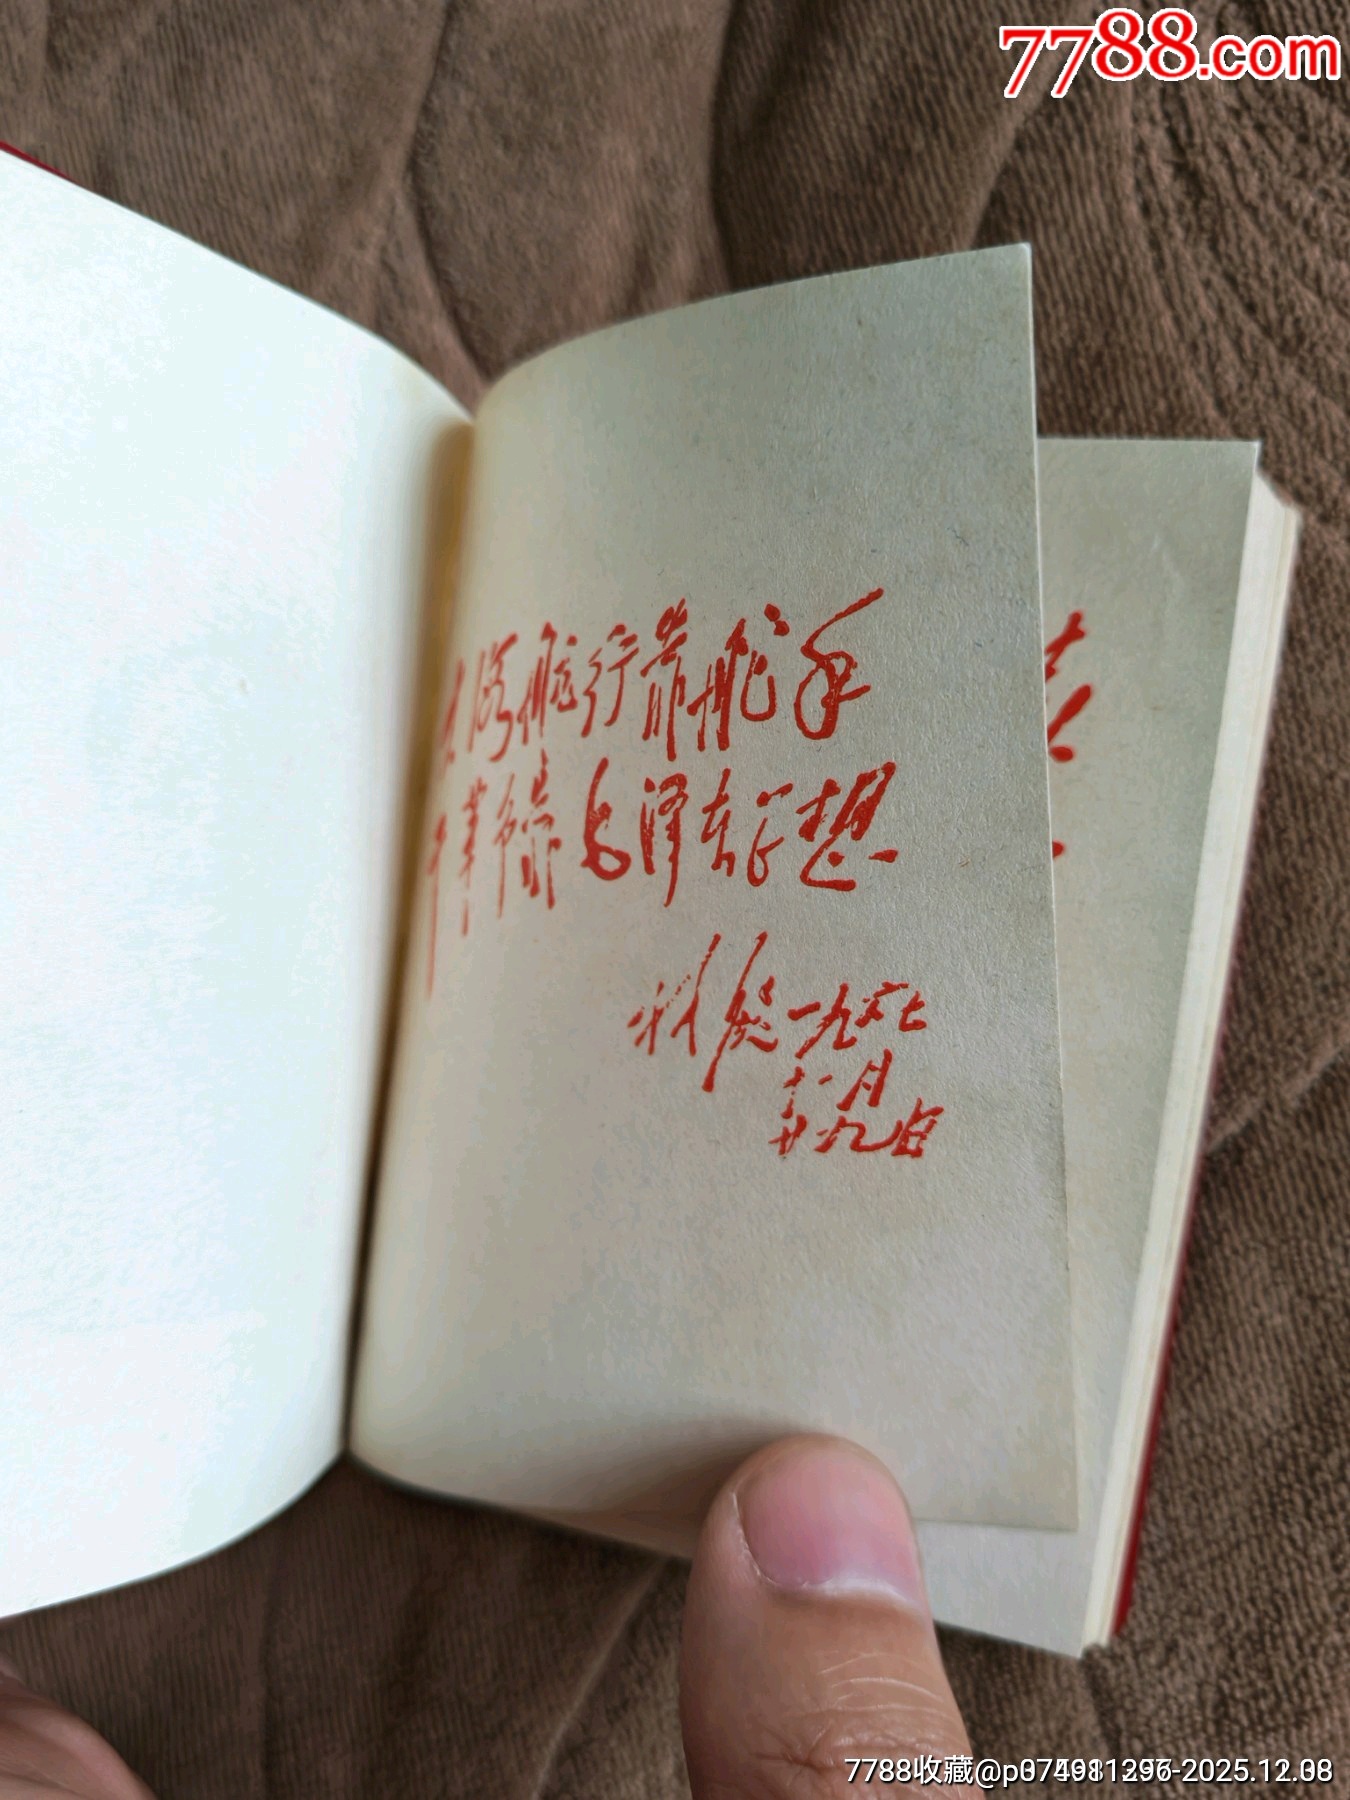 7788.com
大海航行靠舵手
干革命靠毛泽东思想
林彪 一九六七
十一月
廿九日
7788收藏@p074981296-2025.12.08